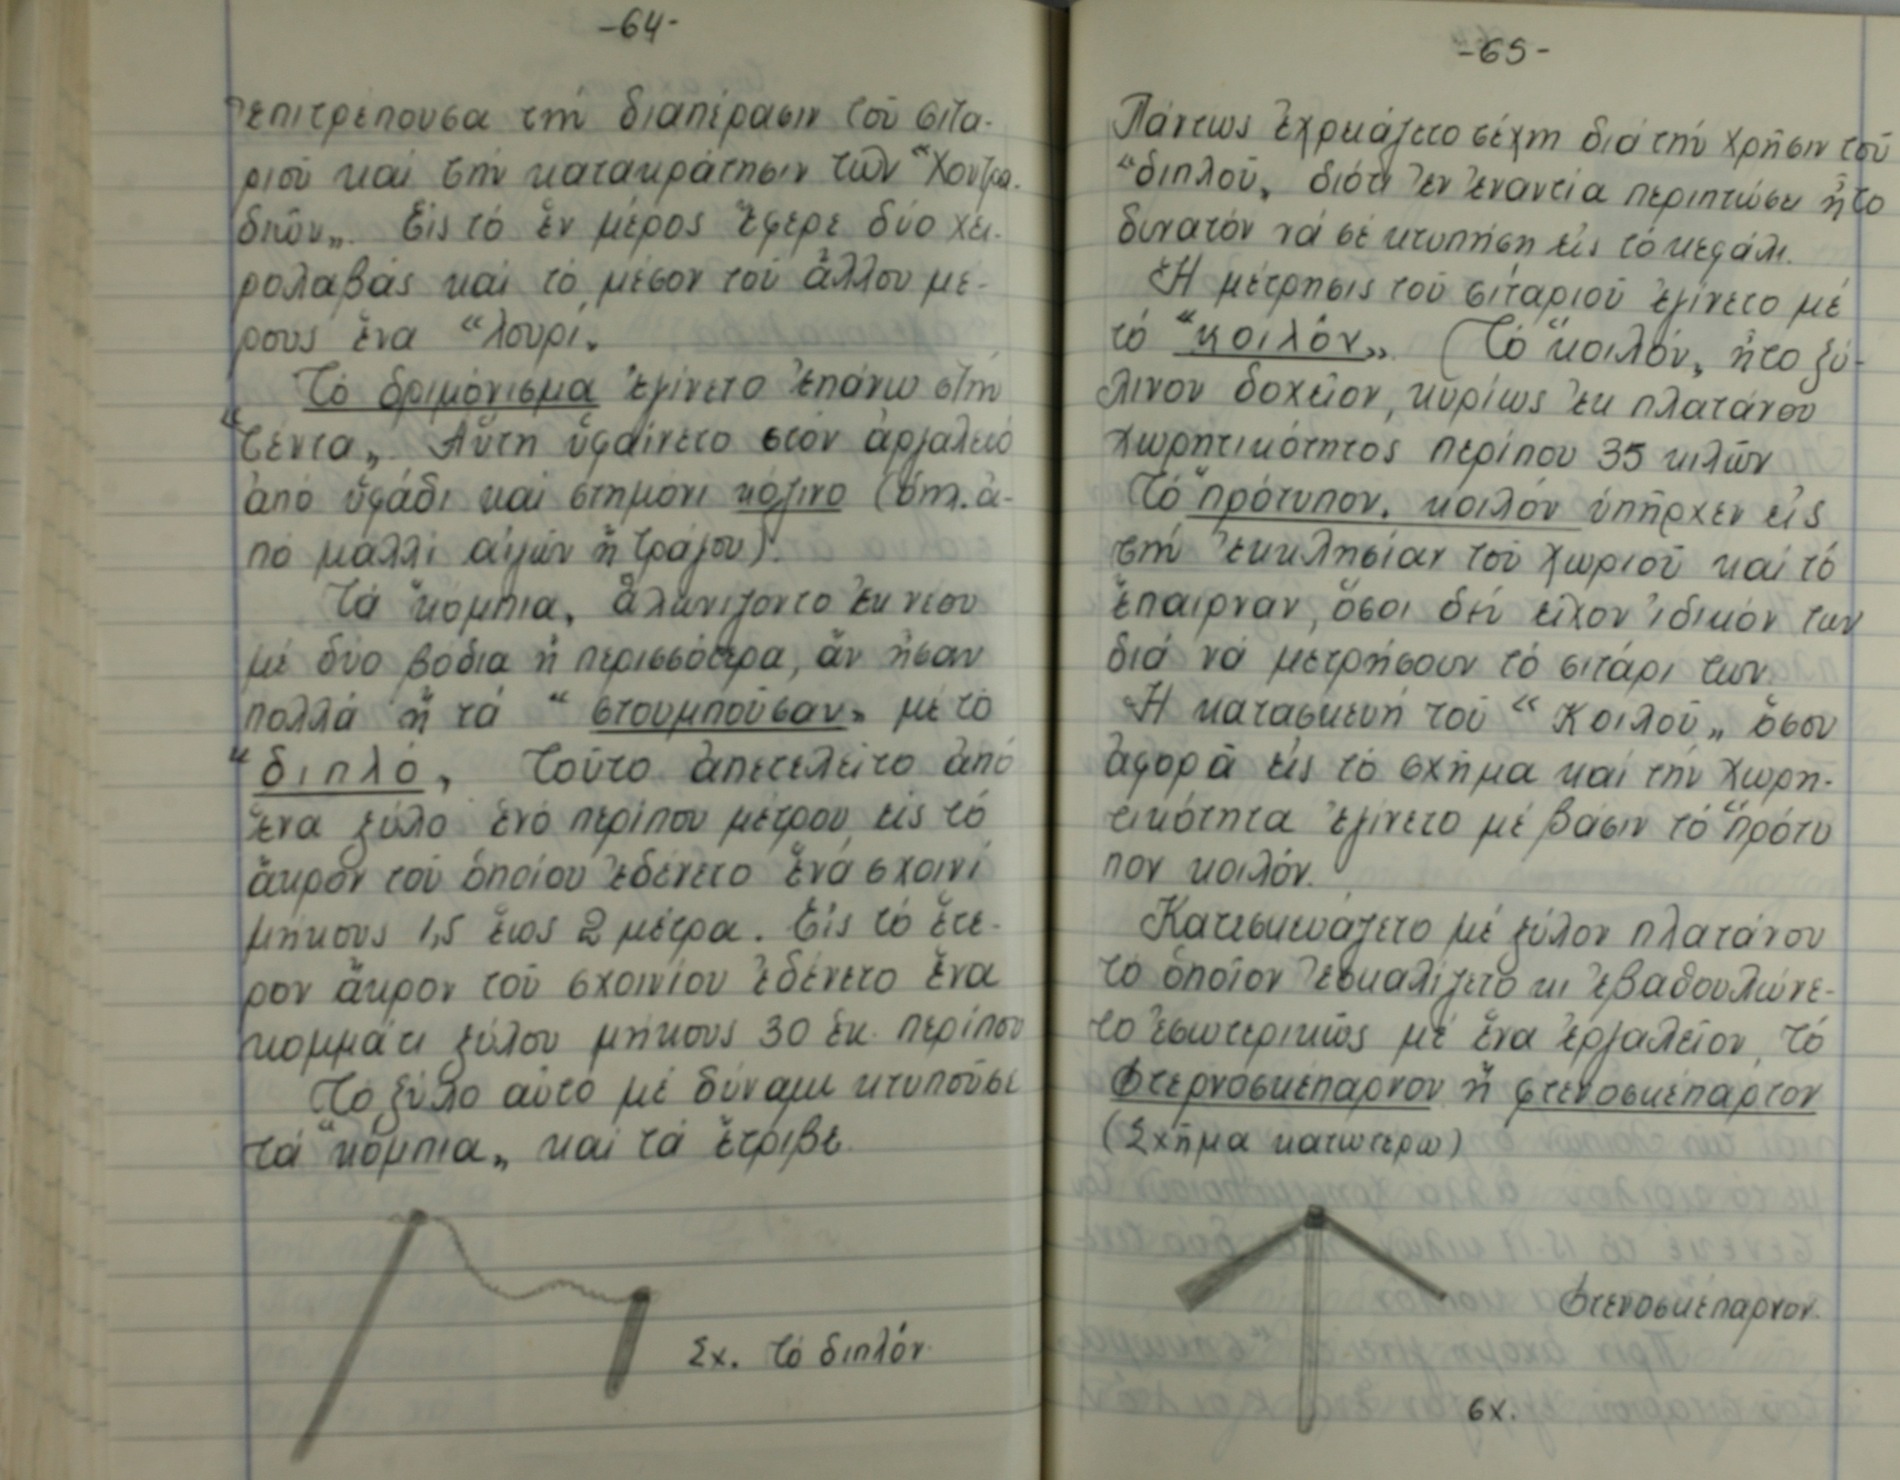 -64-
ἐπιτρέπουσα τήν διαπέρασιν τοῦ σιτα-
ριοῦ καί τήν κατακράτησιν τῶν "Χοντρα-
διῶν„. Εἰς τό ἕν μέρος ἔφερε δύο χει-
ρολαβάς καί τό μέσον τοῦ ἄλλου μέ-
ρους ἕνα "λουρί„
Τό δριμόνισμα ἐγίνετο ἐπάνω στήν
"τέντα„. Αὕτη ὑφαίνετο στόν ἀργαλειό
ἀπό ὑφάδι καί στημόνι κόζινο (δηλ. ἀ-
πό μαλλί αἰγῶν ἤ τράγου).
Τά "κόμπια„ ἁλωνίζοντο ἐκ νέου
μέ δύο βόδια ἤ περισσότερα, ἄν ἦσαν
πολλά ἤ τά "στουμποῦσαν„ μέ τό
"διπλό„ Τοῦτο ἀπετελεῖτο ἀπό
ἕνα ξύλο ἑνό περίπου μέτρου εἰς τό
ἄκρον τοῦ ὁποίου ἐδένετο ἕνα σχοινί
μήκους 1,5 ἕως 2 μέτρα. Εἰς τό ἕτε-
ρον ἄκρον τοῦ σχοινίου ἐδένετο ἕνα
κομμάτι ξύλου μήκους 30 ἑκ. περίπου
Τό ξύλο αὐτό μέ δύναμι κτυποῦσε
τά "κόμπια„ καί τά ἔτριβε.
Σχ. Τό διπλόν
-65-
Πάντως ἐχρειάζετο τέχνη διά τήν χρῆσιν τοῦ
"διπλοῦ„ διότι ἐν ἐναντία περιπτώσει ἦτο
δυνατόν νά σέ κτυπήση εἰς τό κεφάλι.
Ἡ μέτρησις τοῦ σιταριοῦ ἐγίνετο μέ
τό "κοιλόν„. (Τό "κοιλόν„ ἦτο ξύ-
λινον δοχεῖον, κυρίως ἐκ πλατάνου
χωρητικότητος περίπου 35 κιλῶν
Τό "πρότυπον„ κοιλόν ὑπῆρχεν εἰς
τήν ἐκκλησίαν τοῦ χωριοῦ καί τό
ἔπαιρναν, ὅσοι δέν εἶχον ἰδικόν των
διά νά μετρήσουν τό σιτάρι των.
Ἡ κατασκευή τοῦ "Κοιλοῦ„ ὅσον
ἀφορᾶ εἰς τό σχῆμα καί τήν χωρη-
τικότητα ἐγίνετο μέ βάσιν τό "πρότυ
πον κοιλόν.
Κατεσκευάζετο μέ ξύλον πλατάνου
τό ὁποῖον ἐσκαλίζετο κι ἐβαθουλώνε-
το ἐσωτερικῶς μέ ἕνα ἐργαλεῖον, τό
Φτερνοσκέπαρνον ἤ φτενοσκέπαρτον
(Σχῆμα κατωτέρω)
Φτενοσκέπαρνον.
σχ.